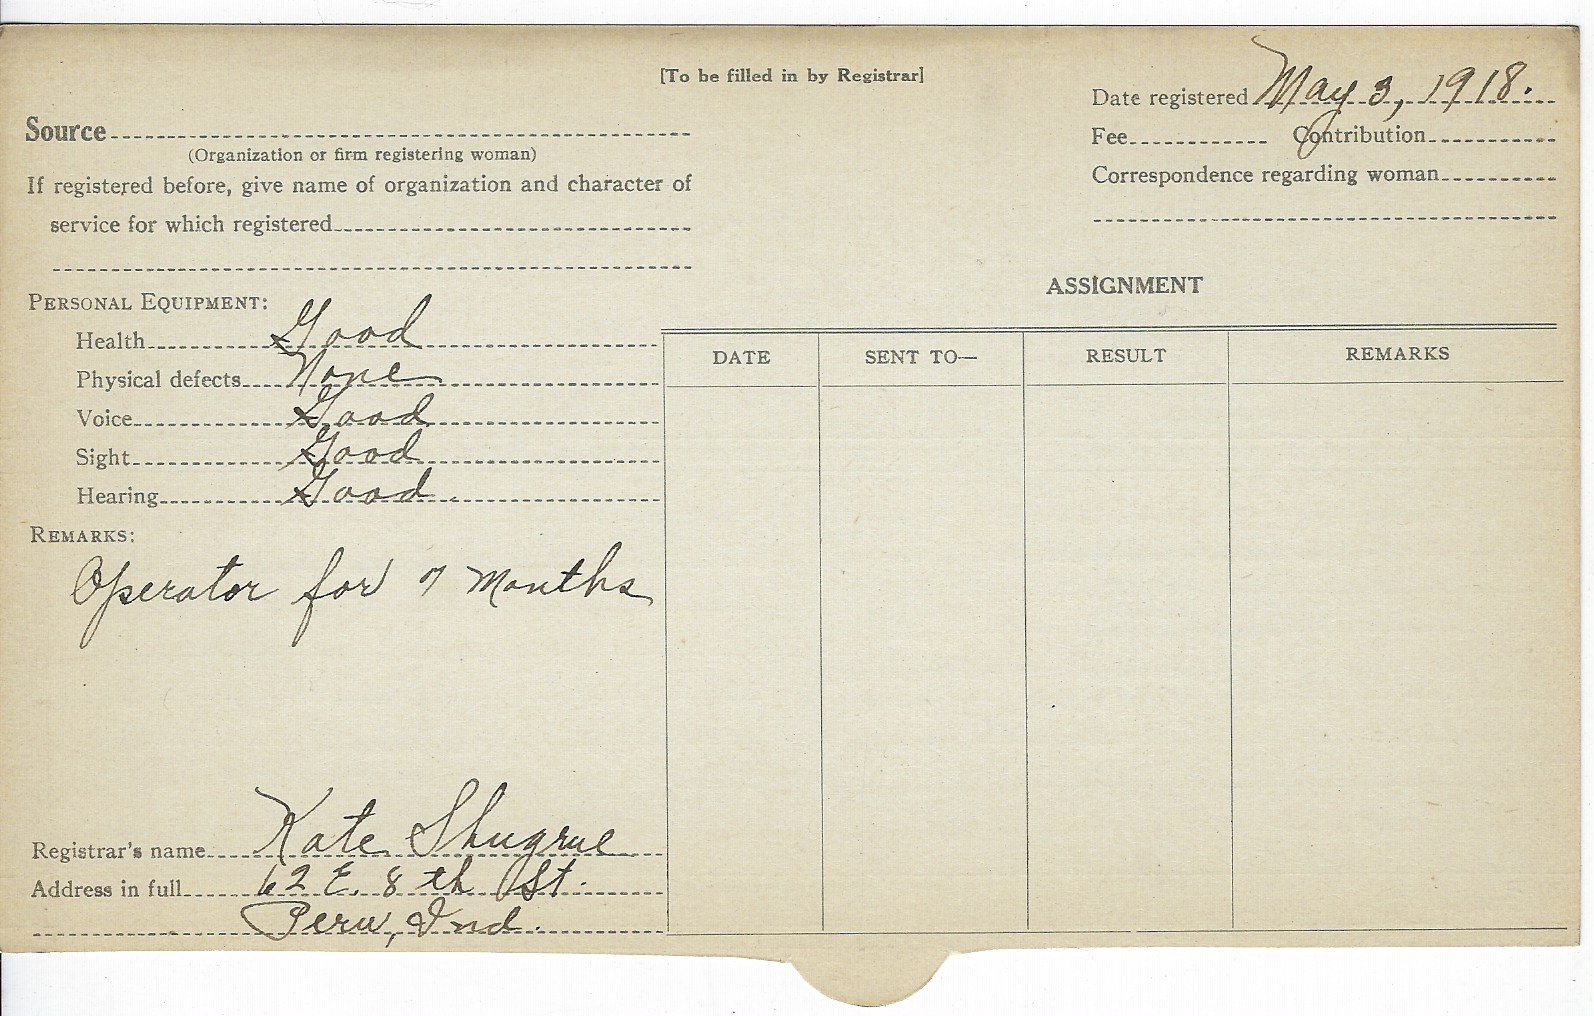 [To be filled in by Registrar]
Date registered May 3, 1918.
Source
Fee Contribution
(Organization or firm registering woman)
Correspondence regarding woman
If registered before, give name of organization and character of
service for which registered
ASSIGNMENT
PERSONAL EQUIPMENT:
Health Good
DATE SENT TO— RESULT REMARKS
Physical defects None
Voice Good
Sight Good
Hearing Good
REMARKS:
Operator for 7 Months
Registrar's name Kate Shugrue
Address in full 62 E. 8th St.
Peru, Ind.